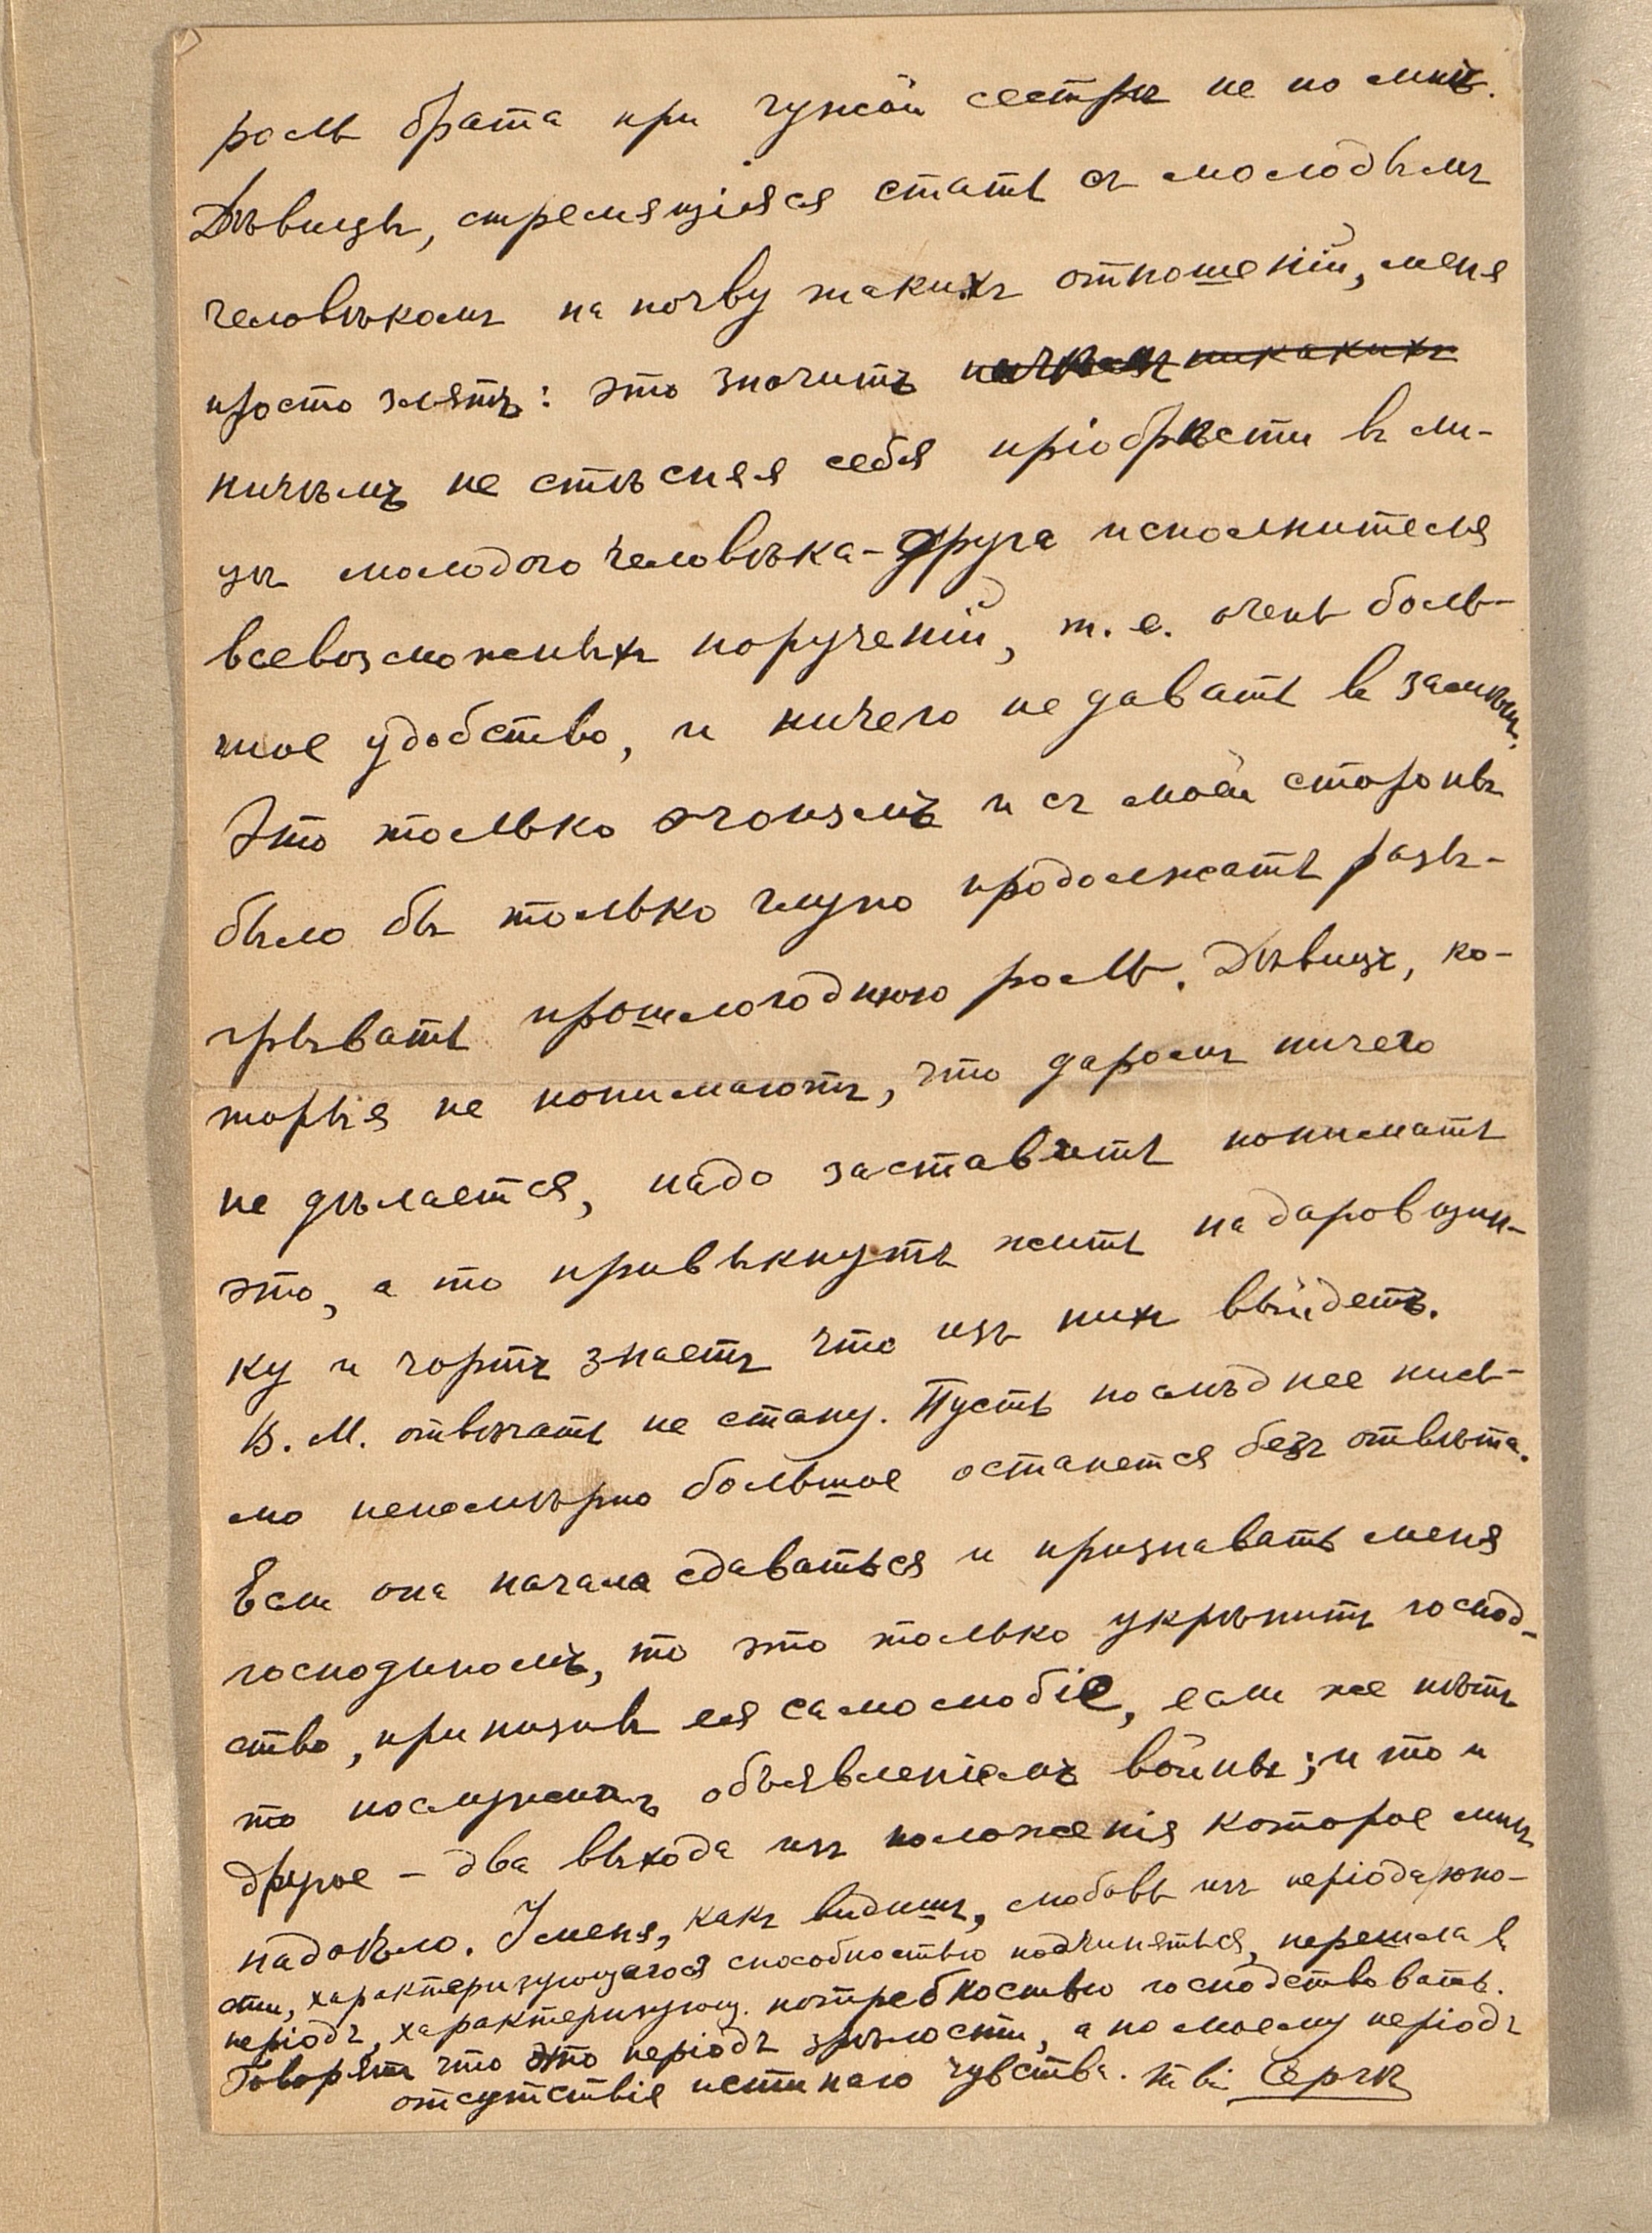 роль брата при чужой сестрѣ не по мнѣ.
Дѣвицы, стремящіяся стать съ молодымъ
человѣкомъ на почву такихъ отношеній, меня
просто злятъ: это значитъ никакихъ
ничѣмъ не стѣсняя себя пріобрѣсти въ ли-
цѣ молодого человѣка-друга исполнителя
всевозможныхъ порученій, т. е. очень боль-
шое удобство, и ничего не давать въ замѣнъ.
Это только эгоизмъ и съ моей стороны
было бы только глупо продолжать разы-
грывать прошлогоднюю роль. Дѣвицъ, ко-
торыя не понимаютъ, что даромъ ничего
не дѣлается, надо заставить понимать
это, а то привыкнутъ жить на даровщин-
ку и чортъ знаетъ что изъ нихъ выйдетъ.
В. М. отвѣчать не стану. Пусть послѣднее пись-
мо непомѣрно большое останется безъ отвѣта.
Если она начала сдаваться и признавать меня
господиномъ, то это только укрѣпитъ господ-
ство, принизивъ ея самолюбіе, если же нѣтъ
то послужитъ объявленіемъ войны; и то и
другое – два выхода изъ положенія которое мнѣ
надоѣло. У меня, какъ видишь, любовь изъ періода юно-
сти, характеризующагося способностью подчиняться, перешла въ
періодъ, характеризующ. потребностью господствовать.
Говорятъ что это періодъ зрѣлости, а по моему періодъ
отсутствіе истинаго чувства. Тві Сергѣй